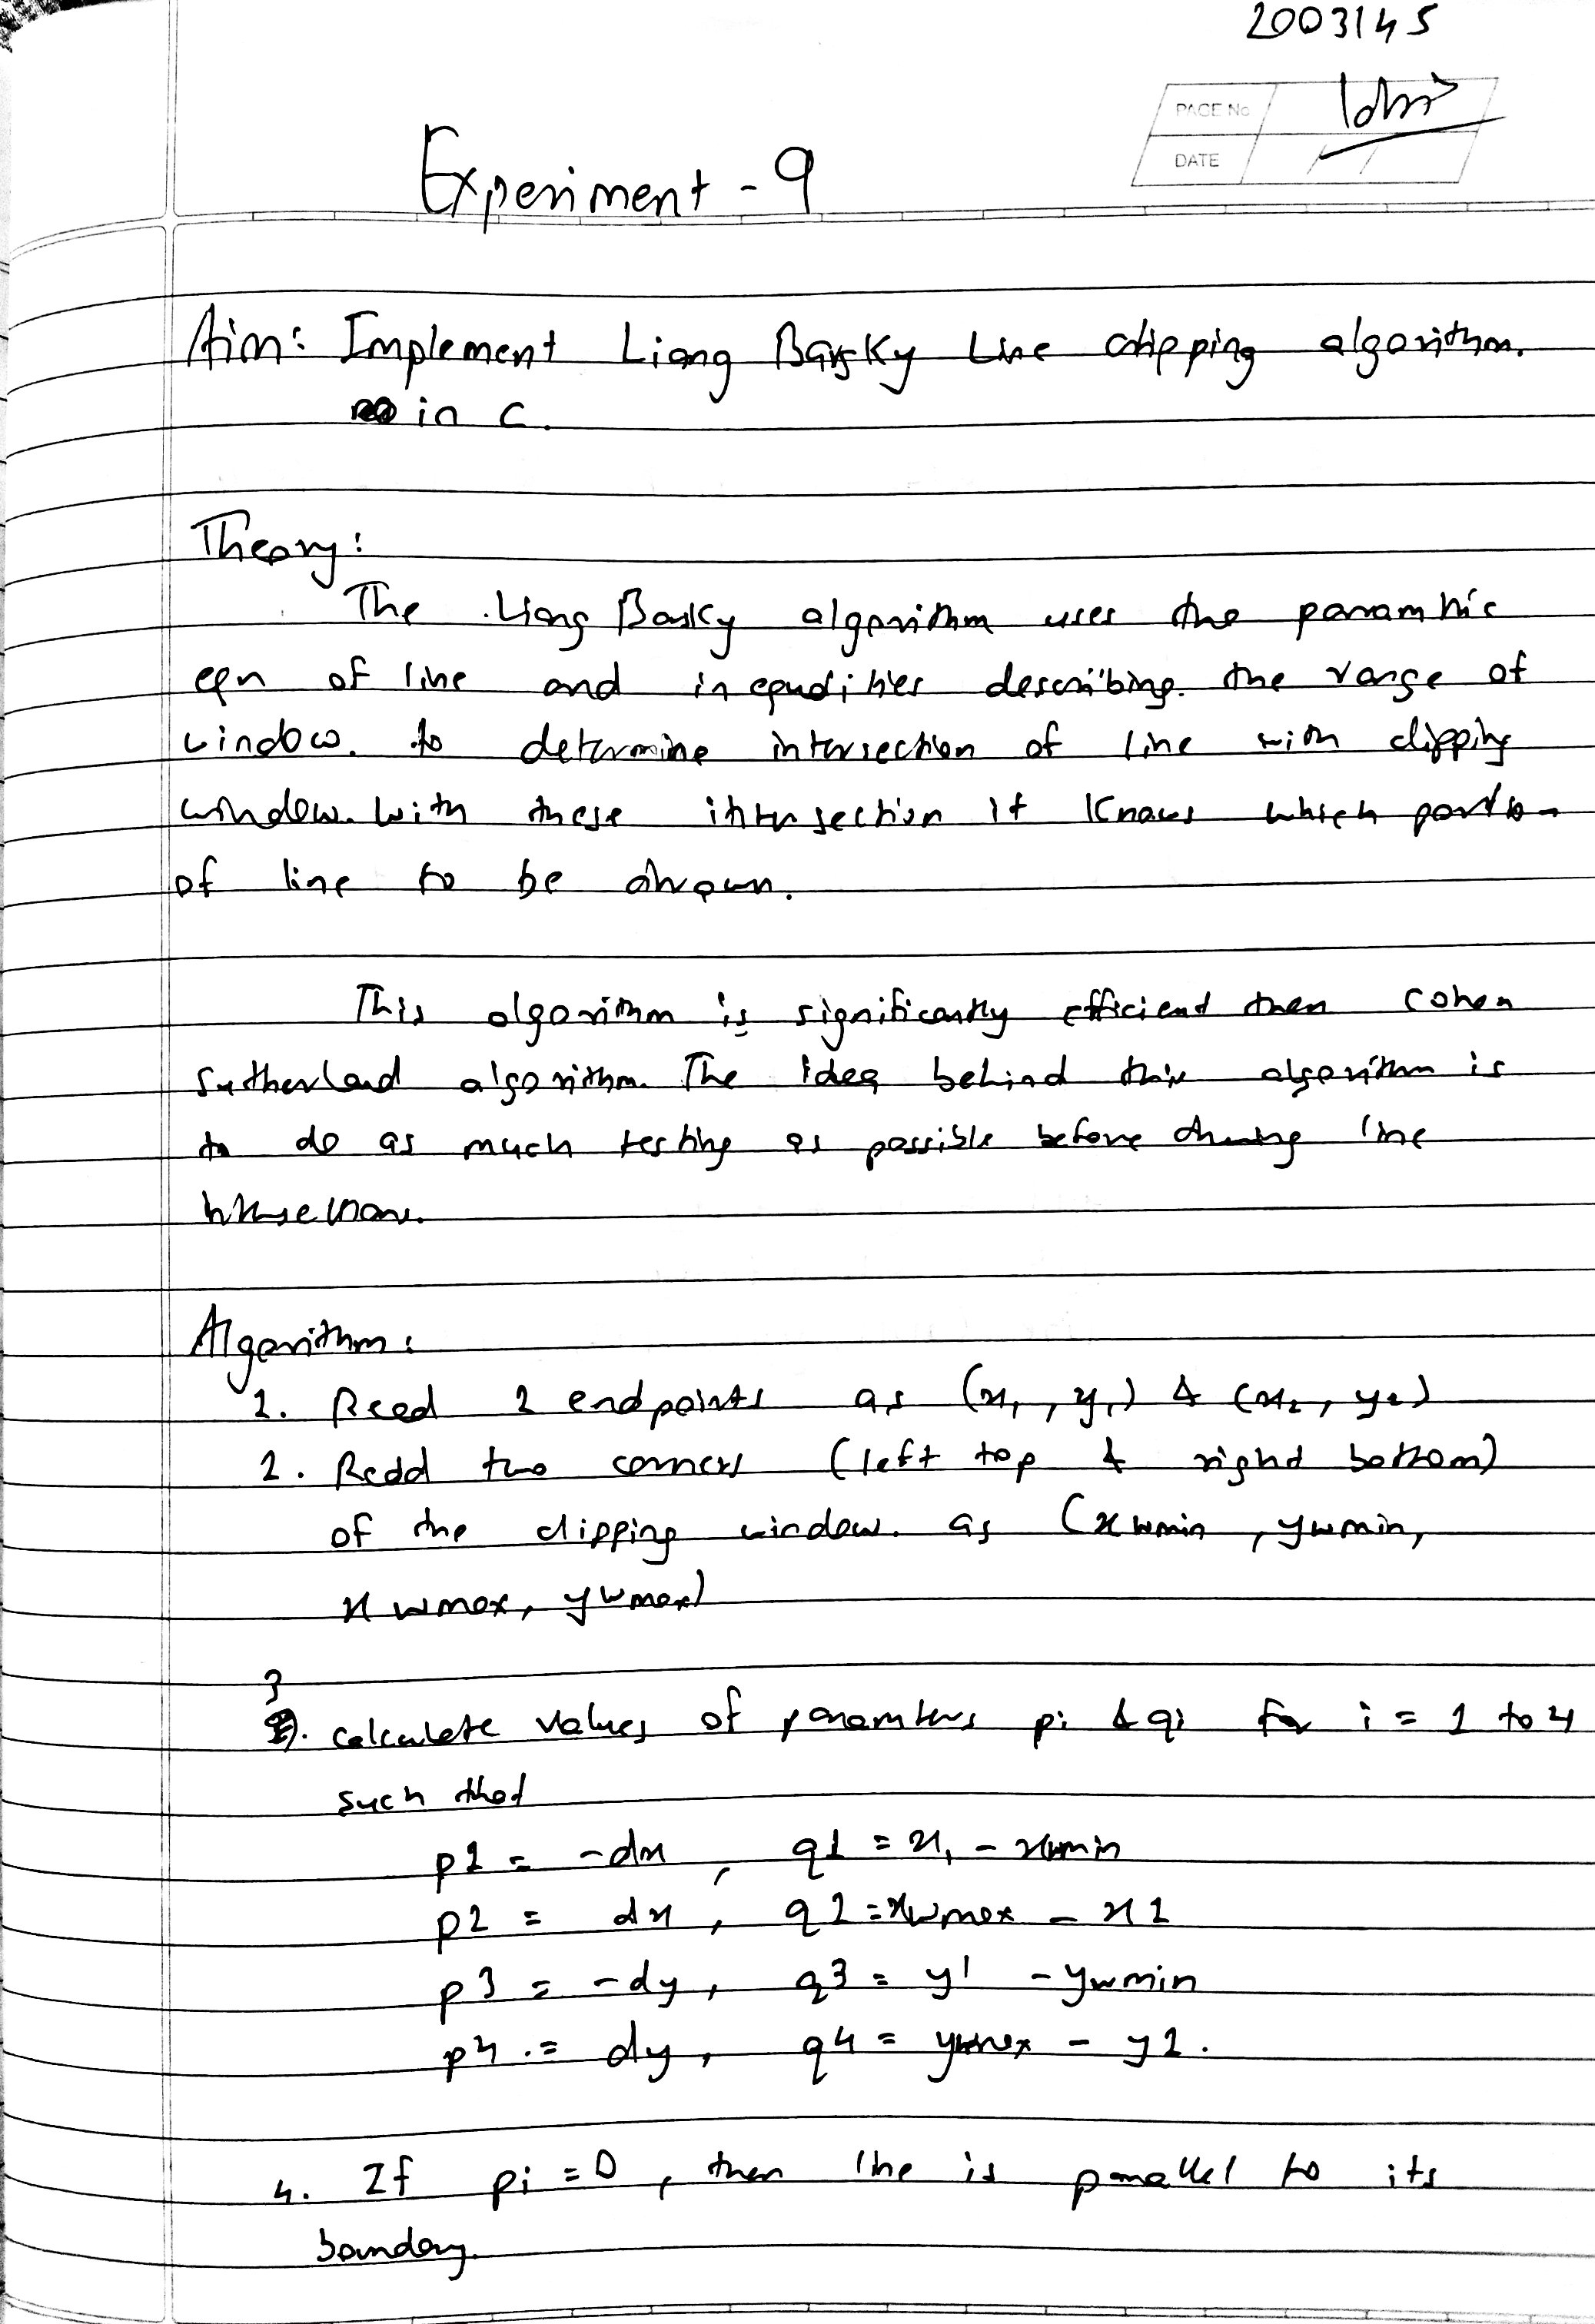 2003145
PAGE No
DATE / /
Experiment - 9
Aim: Implement Liang Barsky Line clipping algorithm.
in C.
Theory:
The Liang Basky algorithm uses the paramtric
eqn of line and inequalities describing the range of
window. to determine intersection of line with clipping
window. With these intersection it knows which portion
of line to be drawn.
This algorithm is significantly efficient then Cohen
Sutherland algorithm. The idea behind this algorithm is
to do as much testing as possible before drawing line
Algorithm:
1. Read 2 endpoints as (x1, y1) & (x2, y2)
2. Read two corners (left top & right bottom)
of the clipping window. as (xwmin, ywmin,
xwmax, ywmax)
3. calculate values of paramters pi & qi for i = 1 to 4
such that
p1 = -dx, q1 = x1 - xwmin
p2 = dx, q2 = xwmax - x1
p3 = -dy, q3 = y1 - ywmin
p4 = dy, q4 = ywmax - y1.
4. If pi = 0, then line is parallel to its
boundary.